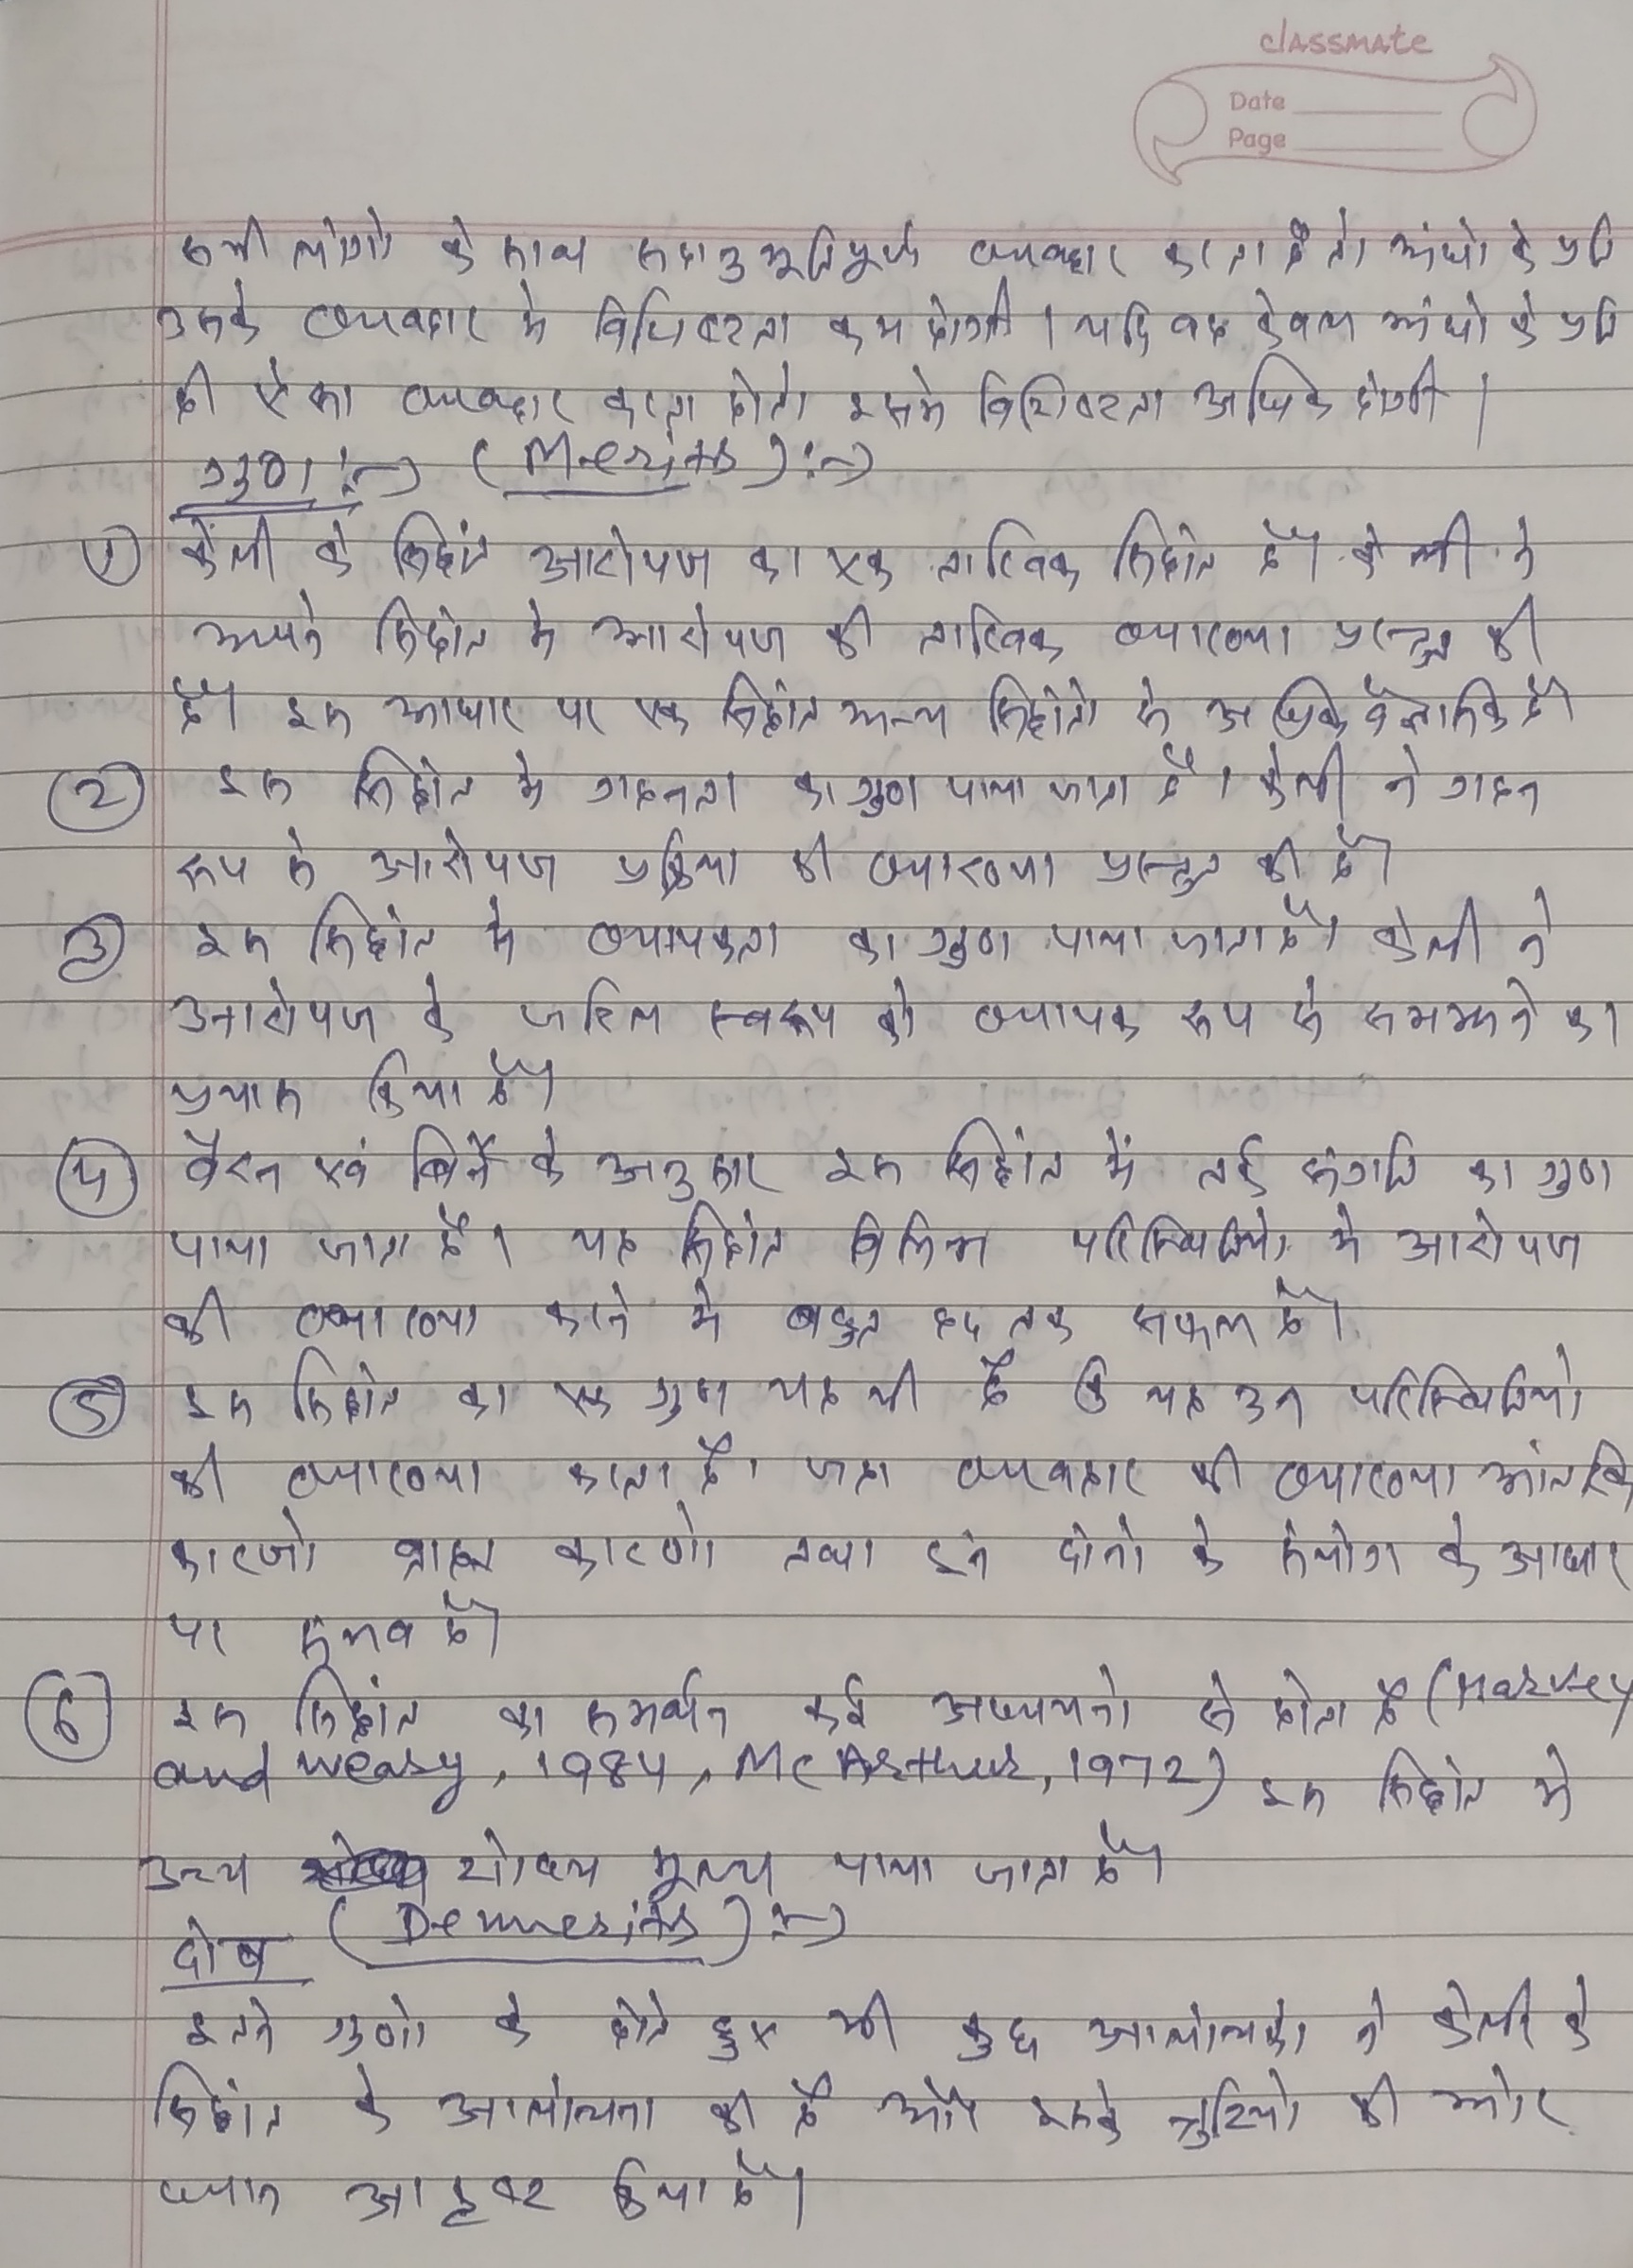 classmate
Date
Page
सभी लोगो के साथ सहानुभूतिपूर्ण व्यवहार करता है तो अंधो के प्रति
उसके व्यवहार मे विशिष्टता कम होगी । यदि वह केवल अंधो के प्रति
ही ऐसा व्यवहार करता होतो इसमे विशिष्टता अधिक होगी ।
गुण :→ (Merits) :→
① केली के सिद्धांत आरोपण का एक तार्किक सिद्धांत है। केली ने
अपने सिद्धांत मे आरोपण की तार्किक व्याख्या प्रस्तुत की
है। इस आधार पर एक सिद्धांत अन्य सिद्धांतो से अधिक वैज्ञानिक है।
② इस सिद्धांत मे गहनता का गुण पाया जाता है । केली ने गहन
रूप से आरोपण प्रक्रिया की व्याख्या प्रस्तुत की है।
③ इस सिद्धांत मे व्यापकता का गुण पाया जाता है। केली ने
आरोपण के जटिल स्वरूप को व्यापक रूप से समझने का
प्रयास किया है।
④ वैरन एवं बिर्ने के अनुसार इस सिद्धांत में तर्क संगति का गुण
पाया जाता है । यह सिद्धांत विभिन्न परिस्थितियो मे आरोपण
की व्याख्या करने मे बहुत हद तक सफल है।
⑤ इस सिद्धांत का एक गुण यह भी है कि यह उन परिस्थितियो
की व्याख्या करता है। जहा व्यवहार की व्याख्या आंतरिक
कारणो बाह्य कारणो तथा इन दोनो के संयोग के आधार
पर संभव है।
⑥ इस सिद्धांत का समर्थन कई अध्ययनो से होता है (Harvey
and Weary, 1984, McArthur, 1972) इस सिद्धांत मे
उच्च शोध मूल्य पाया जाता है।
दोष (Demerits) :→
इतने गुणो के होते हुए भी कुछ आलोचको ने केली के
सिद्धांत के आलोचना की है और इसके त्रुटियो की ओर
ध्यान आकृष्ट किया है।